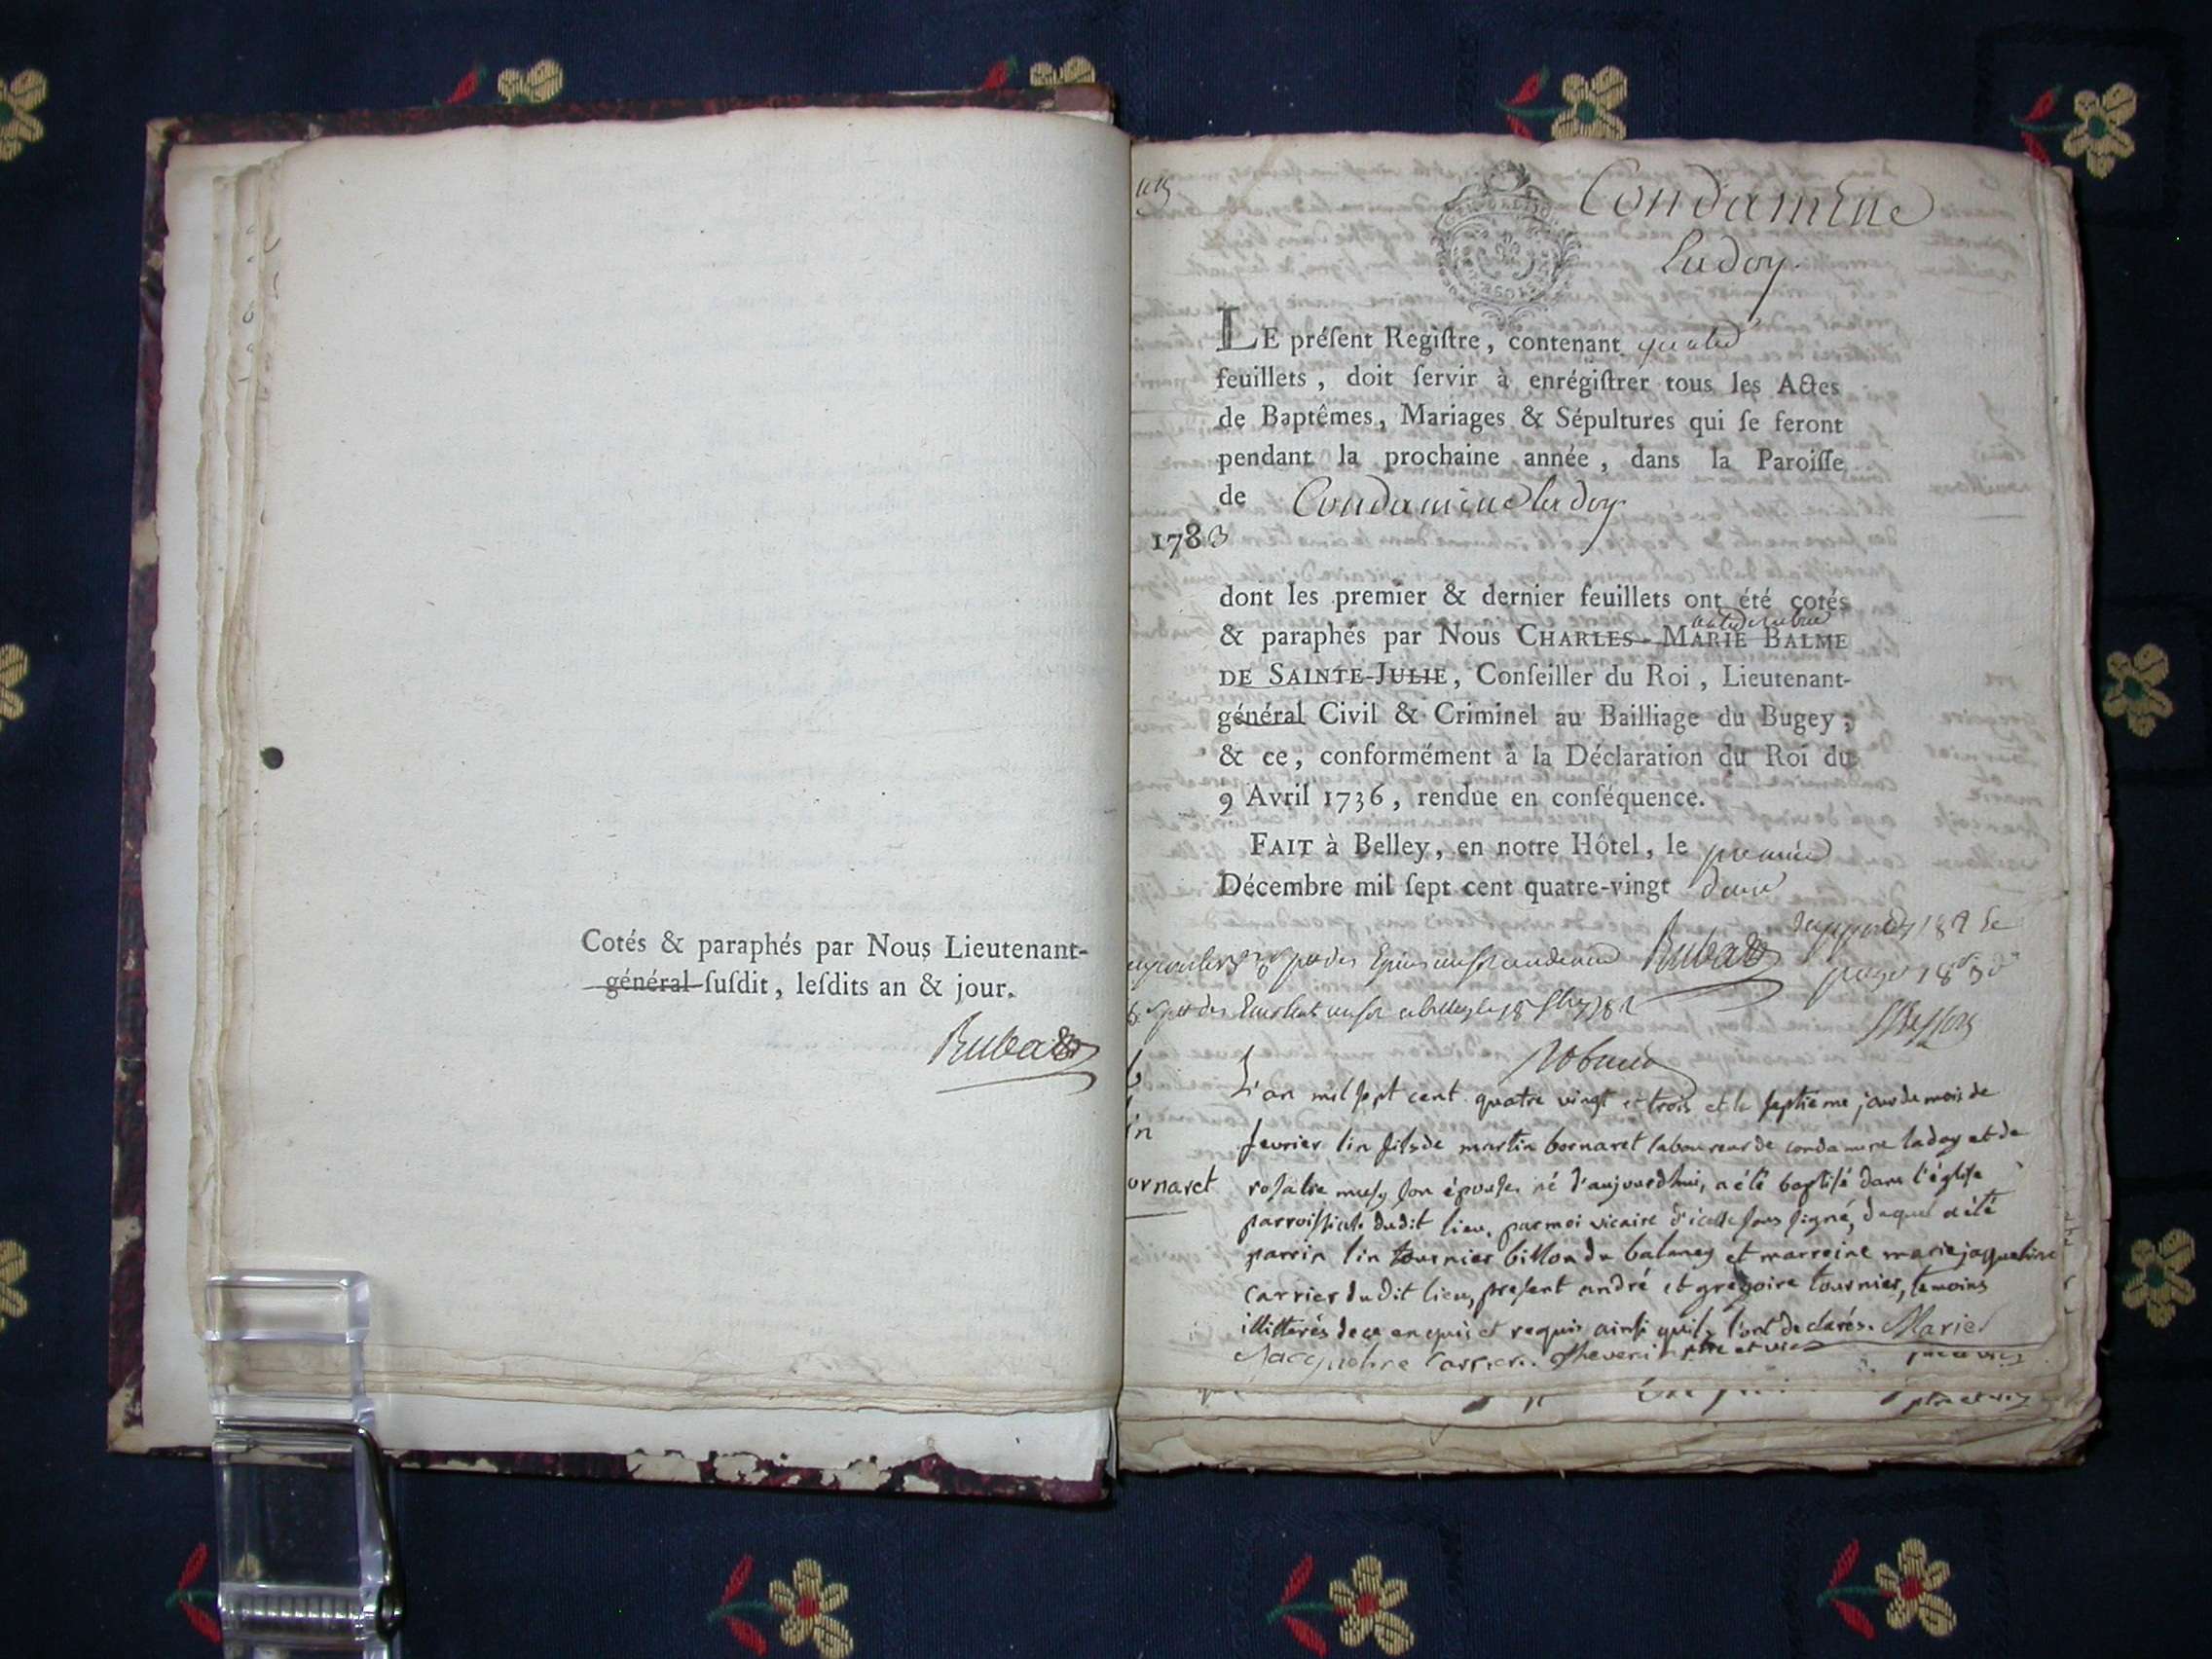 Cotés & paraphés par Nous Lieutenant-
général ſuſdit, leſdits an & jour.
Condamine
ladoy
LE préſent Regiſtre, contenant quatre
feuillets, doit ſervir à enrégiſtrer tous les Actes
de Baptêmes, Mariages & Sépultures qui ſe feront
pendant la prochaine année, dans la Paroiſſe
de Condamine ladoy
1783
dont les premier & dernier feuillets ont été cotés
& paraphés par Nous CHARLES-MARIE BALME
DE SAINTE-JULIE, Conſeiller du Roi, Lieutenant-
général Civil & Criminel au Bailliage du Bugey;
& ce, conformément à la Déclaration du Roi du
9 Avril 1736, rendue en conſéquence.
FAIT à Belley, en notre Hôtel, le premier
Décembre mil ſept cent quatre-vingt deux
L'an mil sept cent quatre vingt et trois et le septieme jour du mois de
fevrier lin fils de martin bornaret laboureur de condamine ladoy et de
ornaret rosalie musy son épouse, né d'aujourdhui, a été baptisé dans l'église
parroissiale dudit lieu, par moi vicaire d'icelle sous signé, duquel a été
parrin lin tournier billon du balmey et marreine marie jaqueline
carrier du dit lieu, présent andré et gregoire tournier, temoins
illitterés de ce enquis et requis ainsi quils l'ont declarés. Marie
Jacqueline Carrier. Thevenin ptre et vic